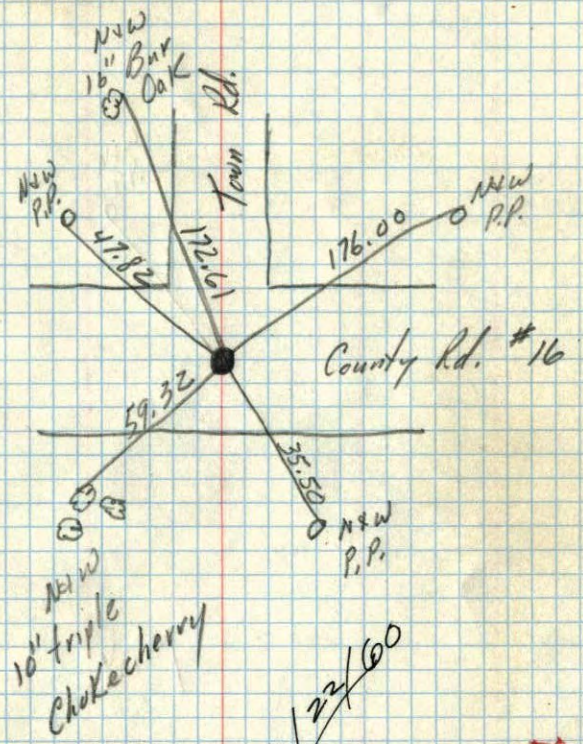 N&W
16" Bur
Oak
Town Rd.
N&W
P.P.
47.82
172.61
176.00
N&W
P.P.
County Rd. #16
59.32
35.50
N&W
P.P.
N&W
10" triple
Chokecherry
122/60